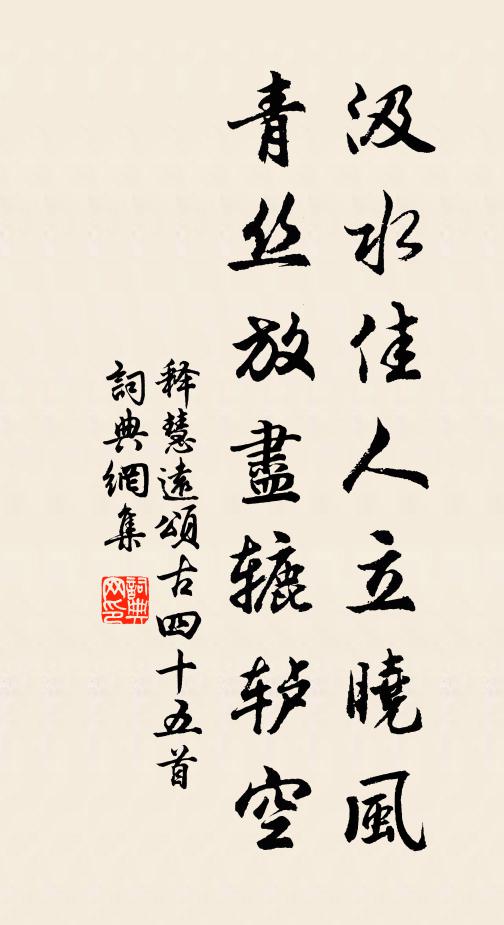 汲水佳人立曉風
青丝放盡辘轳空
释慧遠頌古四十五首
詞典網集
詞典
网印